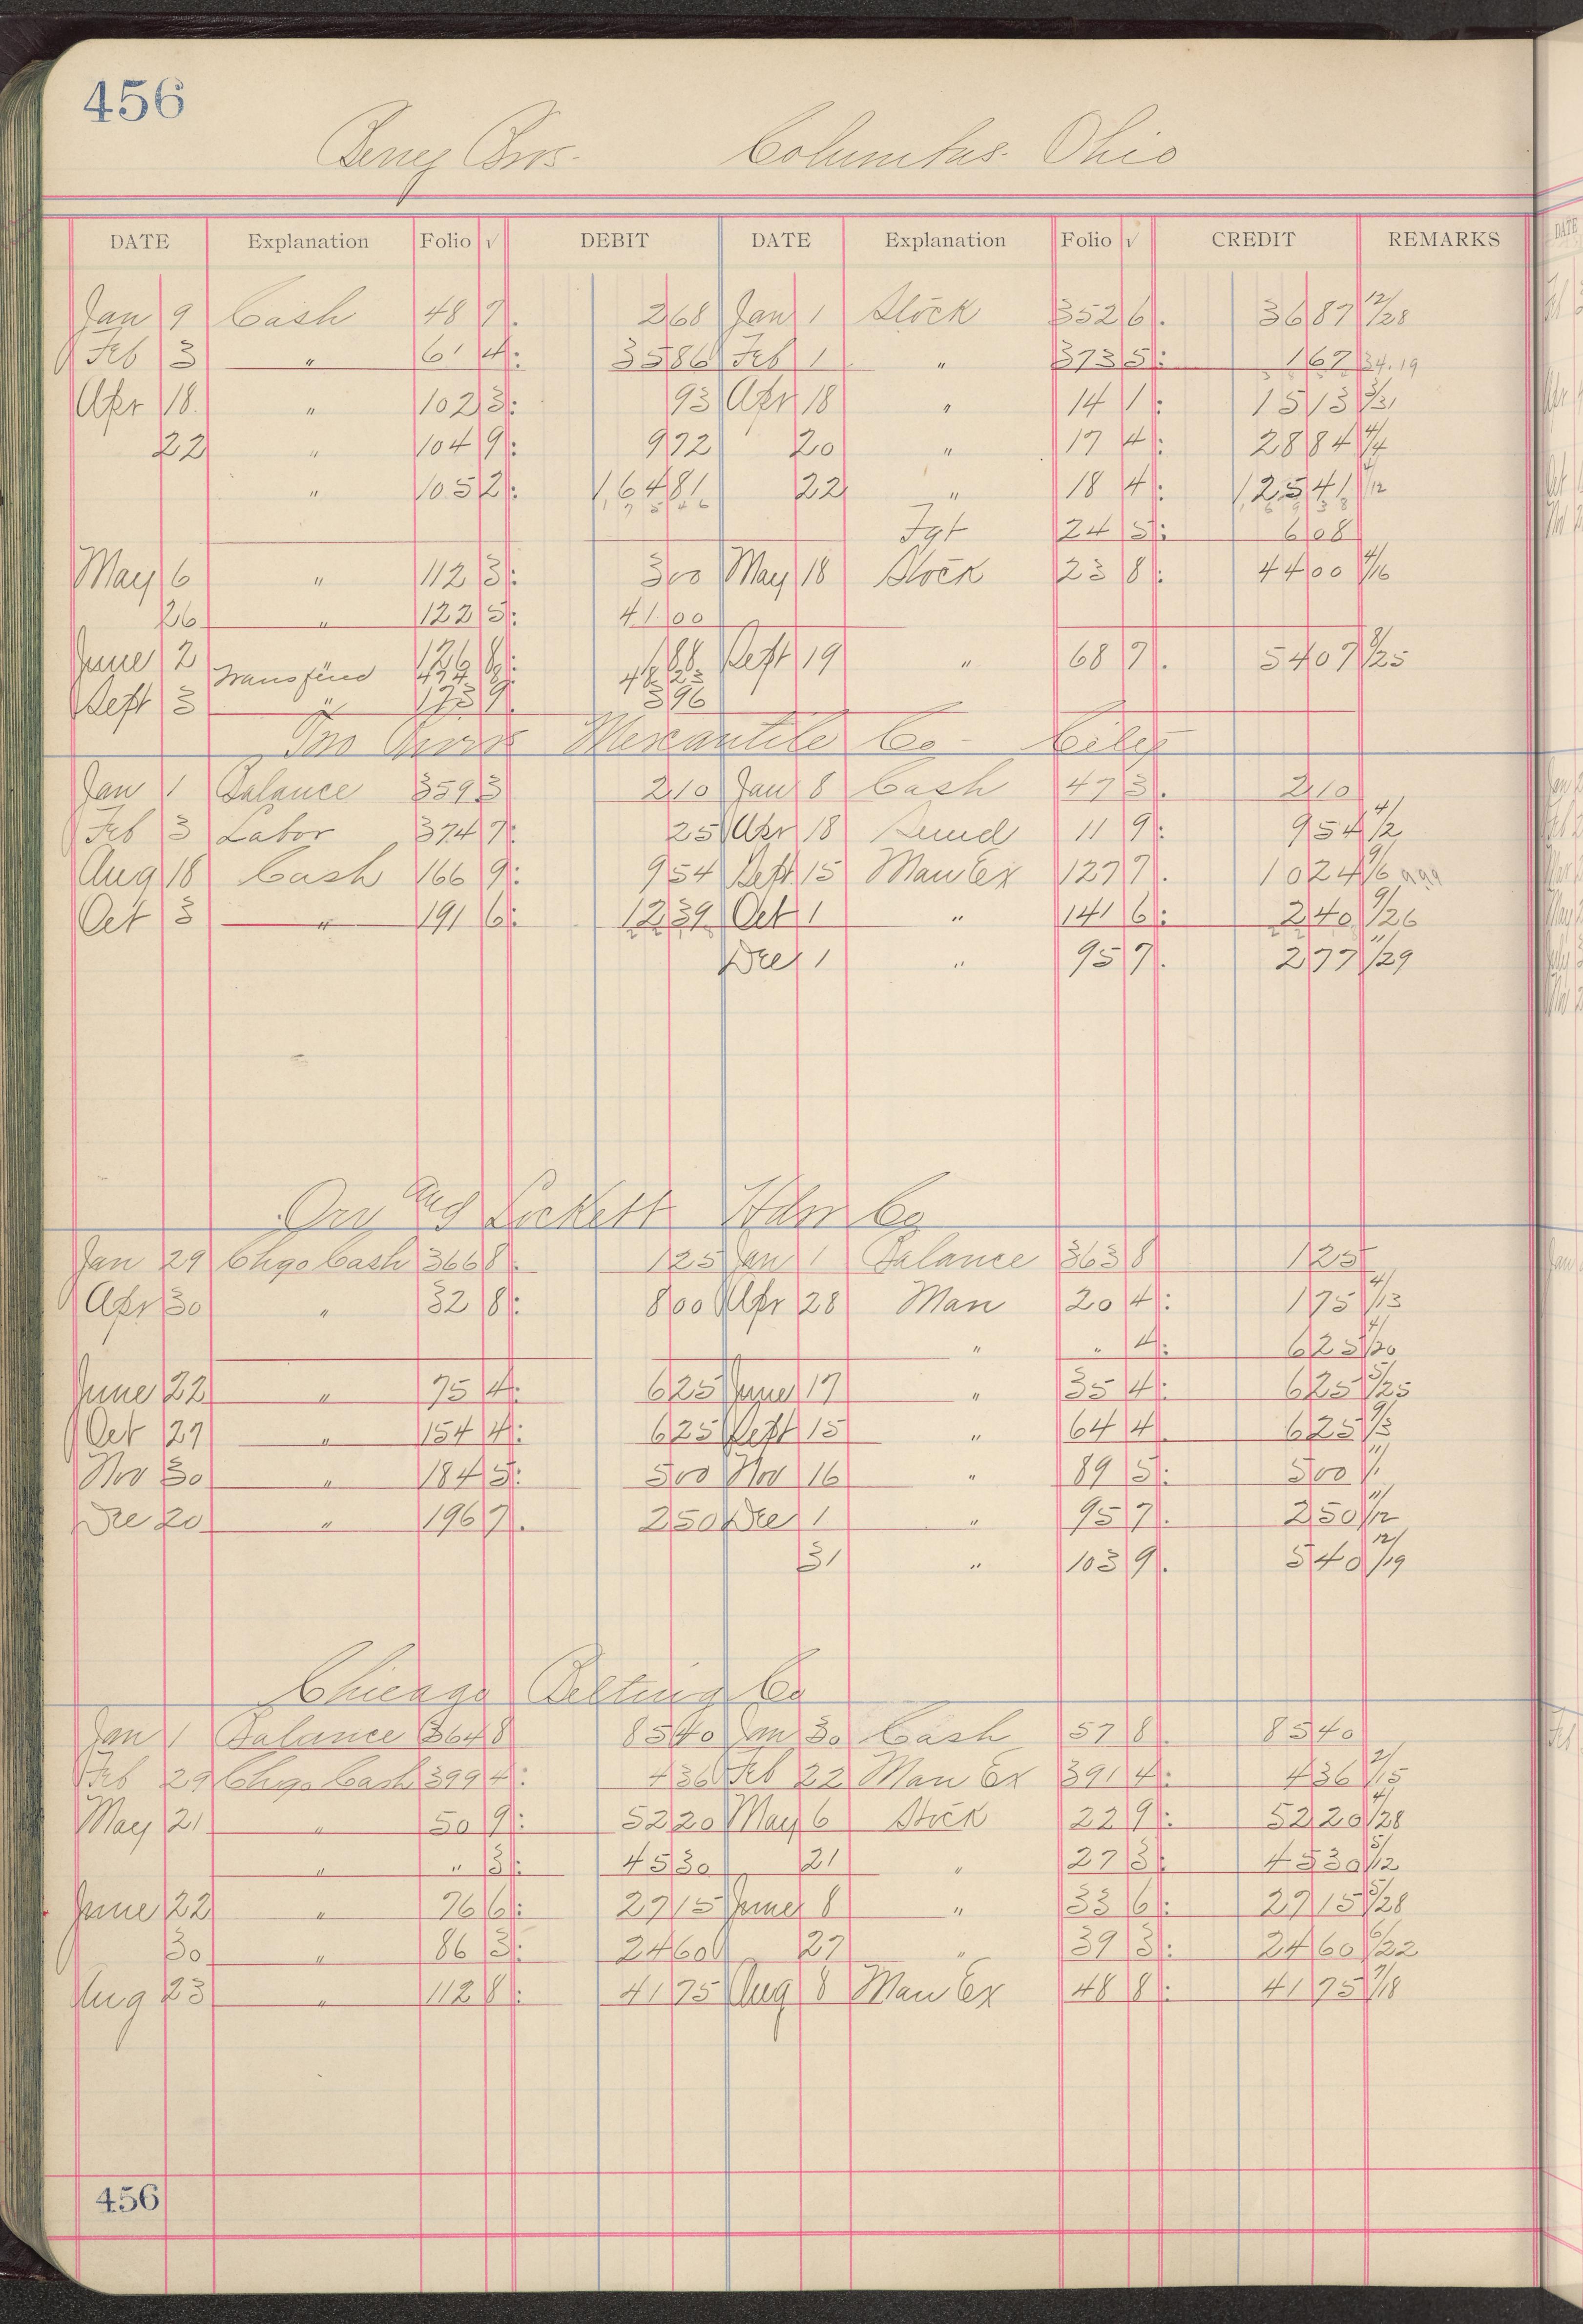 456
Bros. Columbus. Ohio
DATE Explanation Folio √ DEBIT DATE Explanation Folio √ CREDIT REMARKS
Jan 9 Cash 48 7. 2 68 Jan 1 Stock 352 6. 36 87 12/28
Feb 3 " 61 4: 35 86 Feb 1 " 373 5: 1 67 34.19
Apr 18 " 102 3: 93 Apr 18 " 14 1: 15 13 3/31
22 " 104 9: 9 72 20 " 17 4: 28 84 4/4
" 105 2: 164 81 22 " 18 4: 125 41 /12
Fgt 24 5: 6 08
May 6 " 112 3: 3 00 May 18 Stock 23 8: 44 00 4/16
26 " 122 5: 41 00
June 2 " 126 8: 1 88 Sept 19 " 68 7. 54 07 8/25
Transferred 48 23
Sept 3 " 173 9. 3 96
Mercantile Co - City
Jan 1 Balance 359 3 2 10 Jan 8 Cash 47 3. 2 10
Feb 3 Labor 374 7: 25 Apr 18 Sund 11 9: 9 54 4/2
Aug 18 Cash 166 9: 9 54 Sept 15 Man Ex 127 7. 10 24 9/6
Oct 3 " 191 6: 12 39 Oct 1 " 141 6: 2 40 9/26
Dec 1 " 95 7. 2 77 11/29
Orr and Lockett Hdw Co
Jan 29 Chgo Cash 366 8. 1 25 Jan 1 Balance 363 8 1 25
Apr 30 " 32 8: 8 00 Apr 28 Man 20 4: 1 75 4/13
" " 4: 6 25 4/20
June 22 " 75 4: 6 25 June 17 " 35 4: 6 25 5/25
Oct 27 " 154 4: 6 25 Sept 15 " 64 4 6 25 9/3
Nov 30 " 184 5: 5 00 Nov 16 " 89 5: 5 00 11/1
Dec 20 " 196 7. 2 50 Dec 1 " 95 7. 2 50 11/12
31 " 103 9. 5 40 12/19
Chicago Belting Co
Jan 1 Balance 364 8 85 40 Jan 30 Cash 57 8 85 40
Feb 29 Chgo Cash 399 4: 4 36 Feb 22 Man Ex 391 4: 4 36 2/15
May 21 " 50 9: 52 20 May 6 Stock 22 9: 52 20 4/28
" " 3: 45 30 21 " 27 3: 45 30 5/12
June 22 " 76 6: 27 15 June 8 " 33 6: 27 15 5/28
30 " 86 3: 24 60 27 " 39 3: 24 60 6/22
Aug 23 " 112 8: 41 75 Aug 8 Man Ex 48 8: 41 75 7/18
456